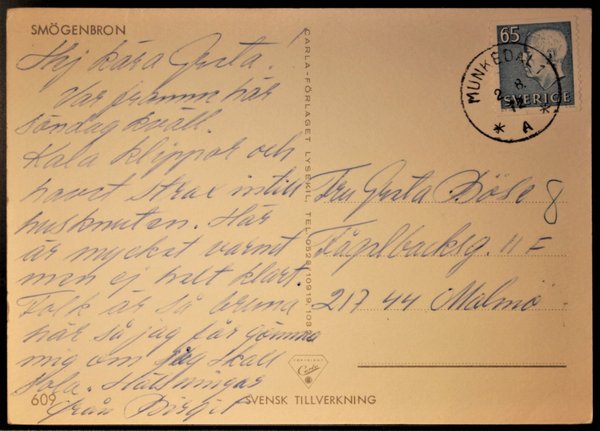 SMÖGENBRON
Hej kära Greta!
Var framme här
söndag kväll.
Kala klippor och
havet strax intill
husknuten. Här
är mycket varmt
men ej helt klart.
Folk är så bruna
här så jag får gömma
mig om jag skall
sola. Hälsningar
från Birgit
609
SVENSK TILLVERKNING
CARLA-FÖRLAGET LYSEKIL, TEL. 0523/109
65
SVERIGE
MUNKEDAL 1
2. 8.
72
* A *
Fru Greta Böse
8
11 F
217 44 Malmö
Carla